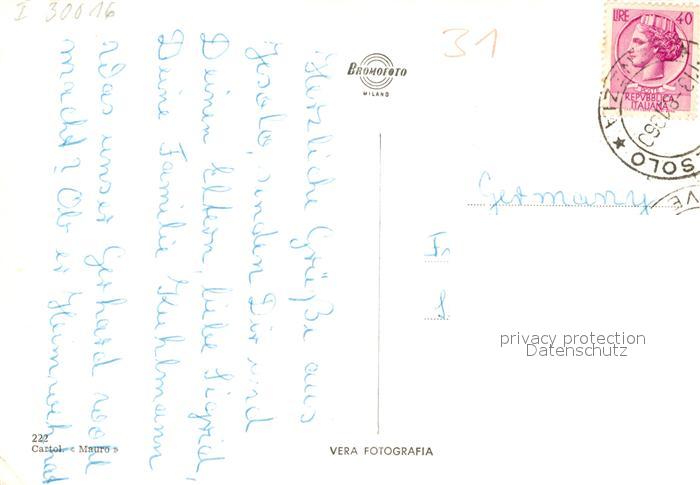 I 30016
31
LIRE 40
POSTE
REPVBBLICA
ITALIANA
ESOLO
BROMOFOTO
MILANO
Herzliche Grüße aus
Jesolo, senden Dir und
Deinen Eltern, liebe Sigrid,
Deine Familie Kuhlmann
Was unser Gerhard wohl
macht? Ob er Heimweh hat
Germany
Fr
S
privacy protection
Datenschutz
222
Cartol. « Mauro »
VERA FOTOGRAFIA